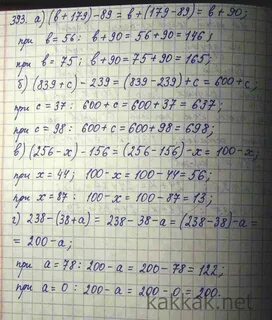 393. а) (в+179)-89 = в+(179-89) = в+90;
при в=56: в+90=56+90=146;
при в=75: в+90=75+90=165;
б) (839+с)-239=(839-239)+с=600+с;
при с=37: 600+с=600+37=637;
при с=98: 600+с=600+98=698;
в) (256-х)-156=(256-156)-х=100-х;
при х=44; 100-х=100-44=56;
при х=87: 100-х=100-87=13;
г) 238-(38+а)=238-38-а=(238-38)-а=
=200-а;
при а=78: 200-а=200-78=122;
при а=0: 200-а=200-0=200.
kakkak.net